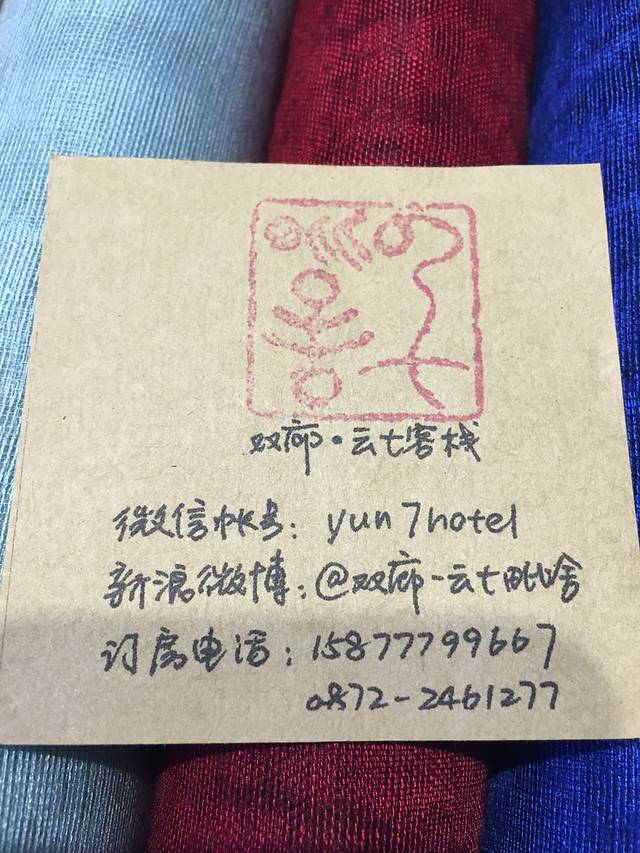 双廊·云七客栈
微信帐号：yun7hotel
新浪微博：@双廊-云七毗舍
订房电话：15877799667
0872-2461277